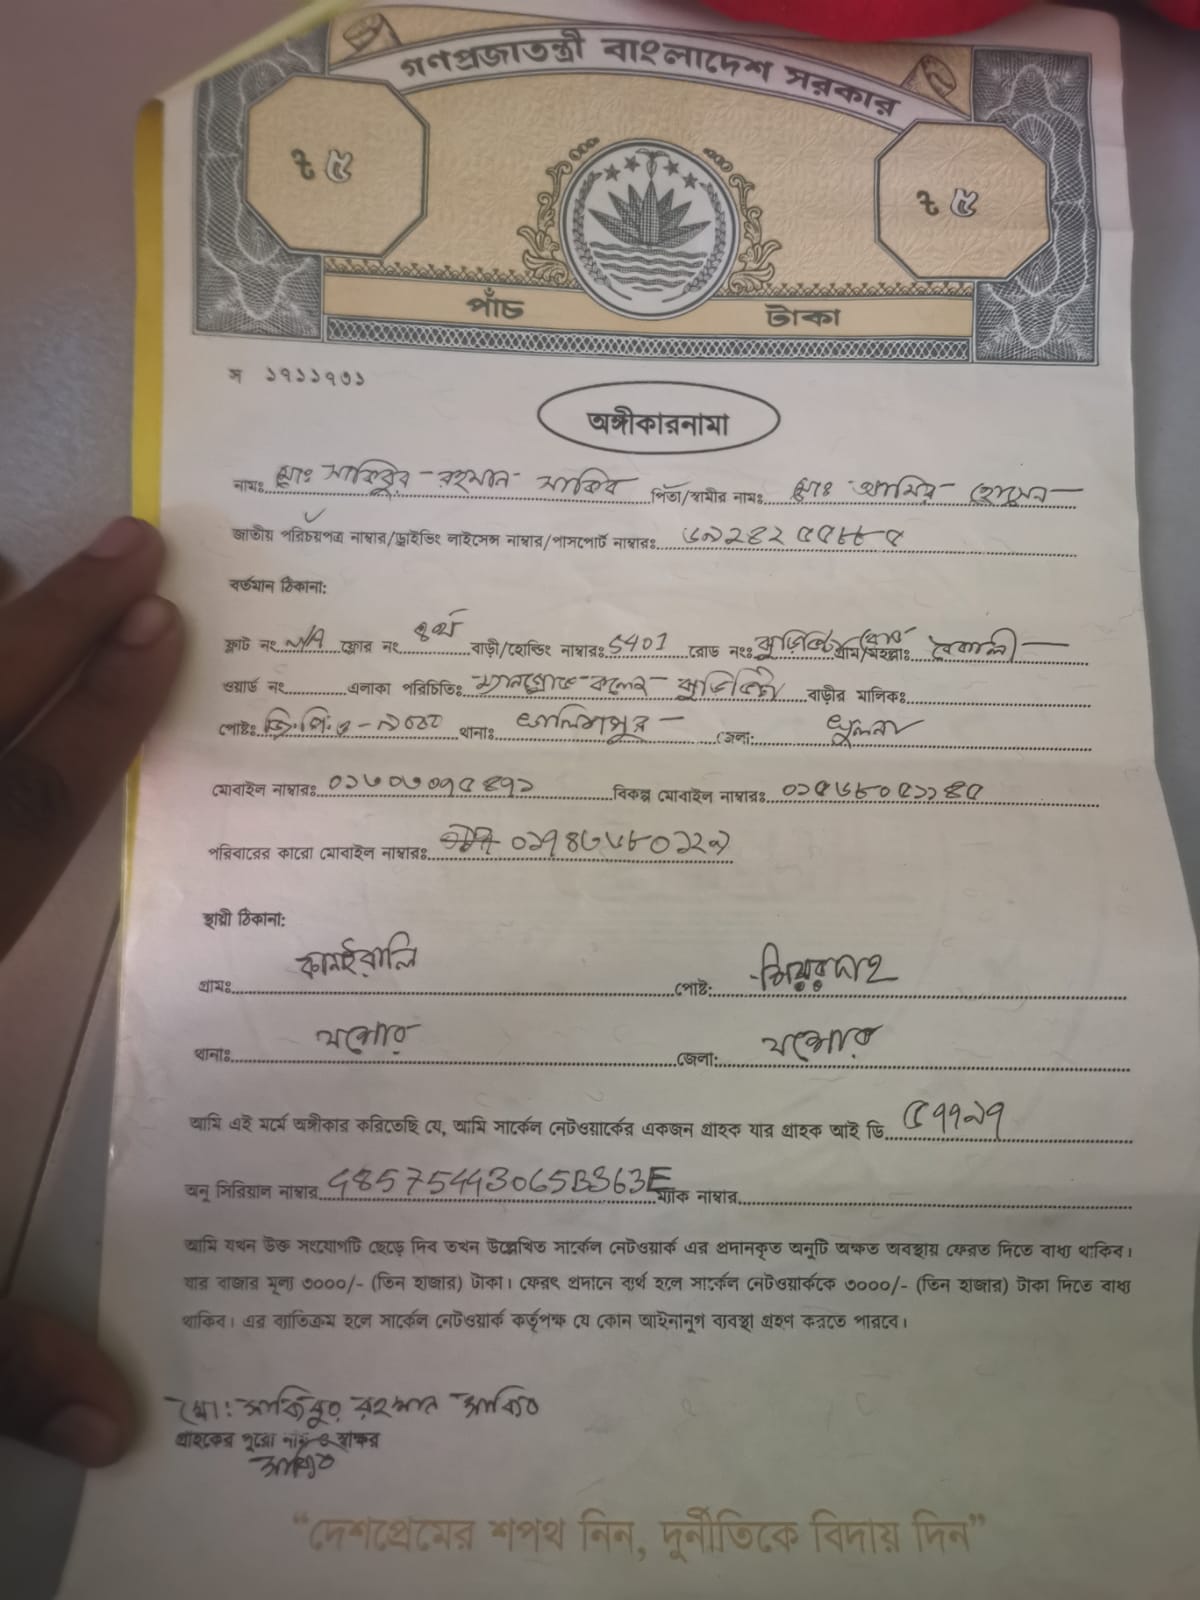 গণপ্রজাতন্ত্রী বাংলাদেশ সরকার
৳ ৫
৳ ৫
পাঁচ টাকা
স ১৭১১৭৩১
অঙ্গীকারনামা
নামঃ মোঃ সাকিবুর রহমান সাকিব পিতা/স্বামীর নামঃ মোঃ আমির হোসেন
জাতীয় পরিচয়পত্র নাম্বার/ড্রাইভিং লাইসেন্স নাম্বার/পাসপোর্ট নাম্বারঃ ৬৯২৪২৫৫৮৮৫
বর্তমান ঠিকানা:
ফ্লাট নং N/A ফ্লোর নং ৪র্থ বাড়ী/হোল্ডিং নাম্বারঃ 5401 রোড নংঃ গ্রাম/মহল্লাঃ বৈকালী
ওয়ার্ড নং এলাকা পরিচিতিঃ ম্যানগ্রোভ কলেজ বাড়ীর মালিকঃ
পোষ্টঃ জি.পি.ও - ৯০০০ থানাঃ খালিশপুর জেলা: খুলনা
মোবাইল নাম্বারঃ ০১৩০৩০৭৫৪৭১ বিকল্প মোবাইল নাম্বারঃ ০১৫৬৮০৫১১৪৫
পরিবারের কারো মোবাইল নাম্বারঃ ০১৭৪৩৬৮০১২৯
স্থায়ী ঠিকানা:
গ্রামঃ পোষ্ট:
থানাঃ যশোর জেলা: যশোর
আমি এই মর্মে অঙ্গীকার করিতেছি যে, আমি সার্কেল নেটওয়ার্কের একজন গ্রাহক যার গ্রাহক আই ডি ৫৭৭৯৭
অনু সিরিয়াল নাম্বার 485754443065B363E ম্যাক নাম্বার
আমি যখন উক্ত সংযোগটি ছেড়ে দিব তখন উল্লেখিত সার্কেল নেটওয়ার্ক এর প্রদানকৃত অনুটি অক্ষত অবস্থায় ফেরত দিতে বাধ্য থাকিব।
যার বাজার মূল্য ৩০০০/- (তিন হাজার) টাকা। ফেরৎ প্রদানে ব্যর্থ হলে সার্কেল নেটওয়ার্ককে ৩০০০/- (তিন হাজার) টাকা দিতে বাধ্য
থাকিব। এর ব্যাতিক্রম হলে সার্কেল নেটওয়ার্ক কর্তৃপক্ষ যে কোন আইনানুগ ব্যবস্থা গ্রহণ করতে পারবে।
মো: সাকিবুর রহমান সাকিব
গ্রাহকের পুরো নাম ও স্বাক্ষর
সাকিব
“দেশপ্রেমের শপথ নিন, দুর্নীতিকে বিদায় দিন”